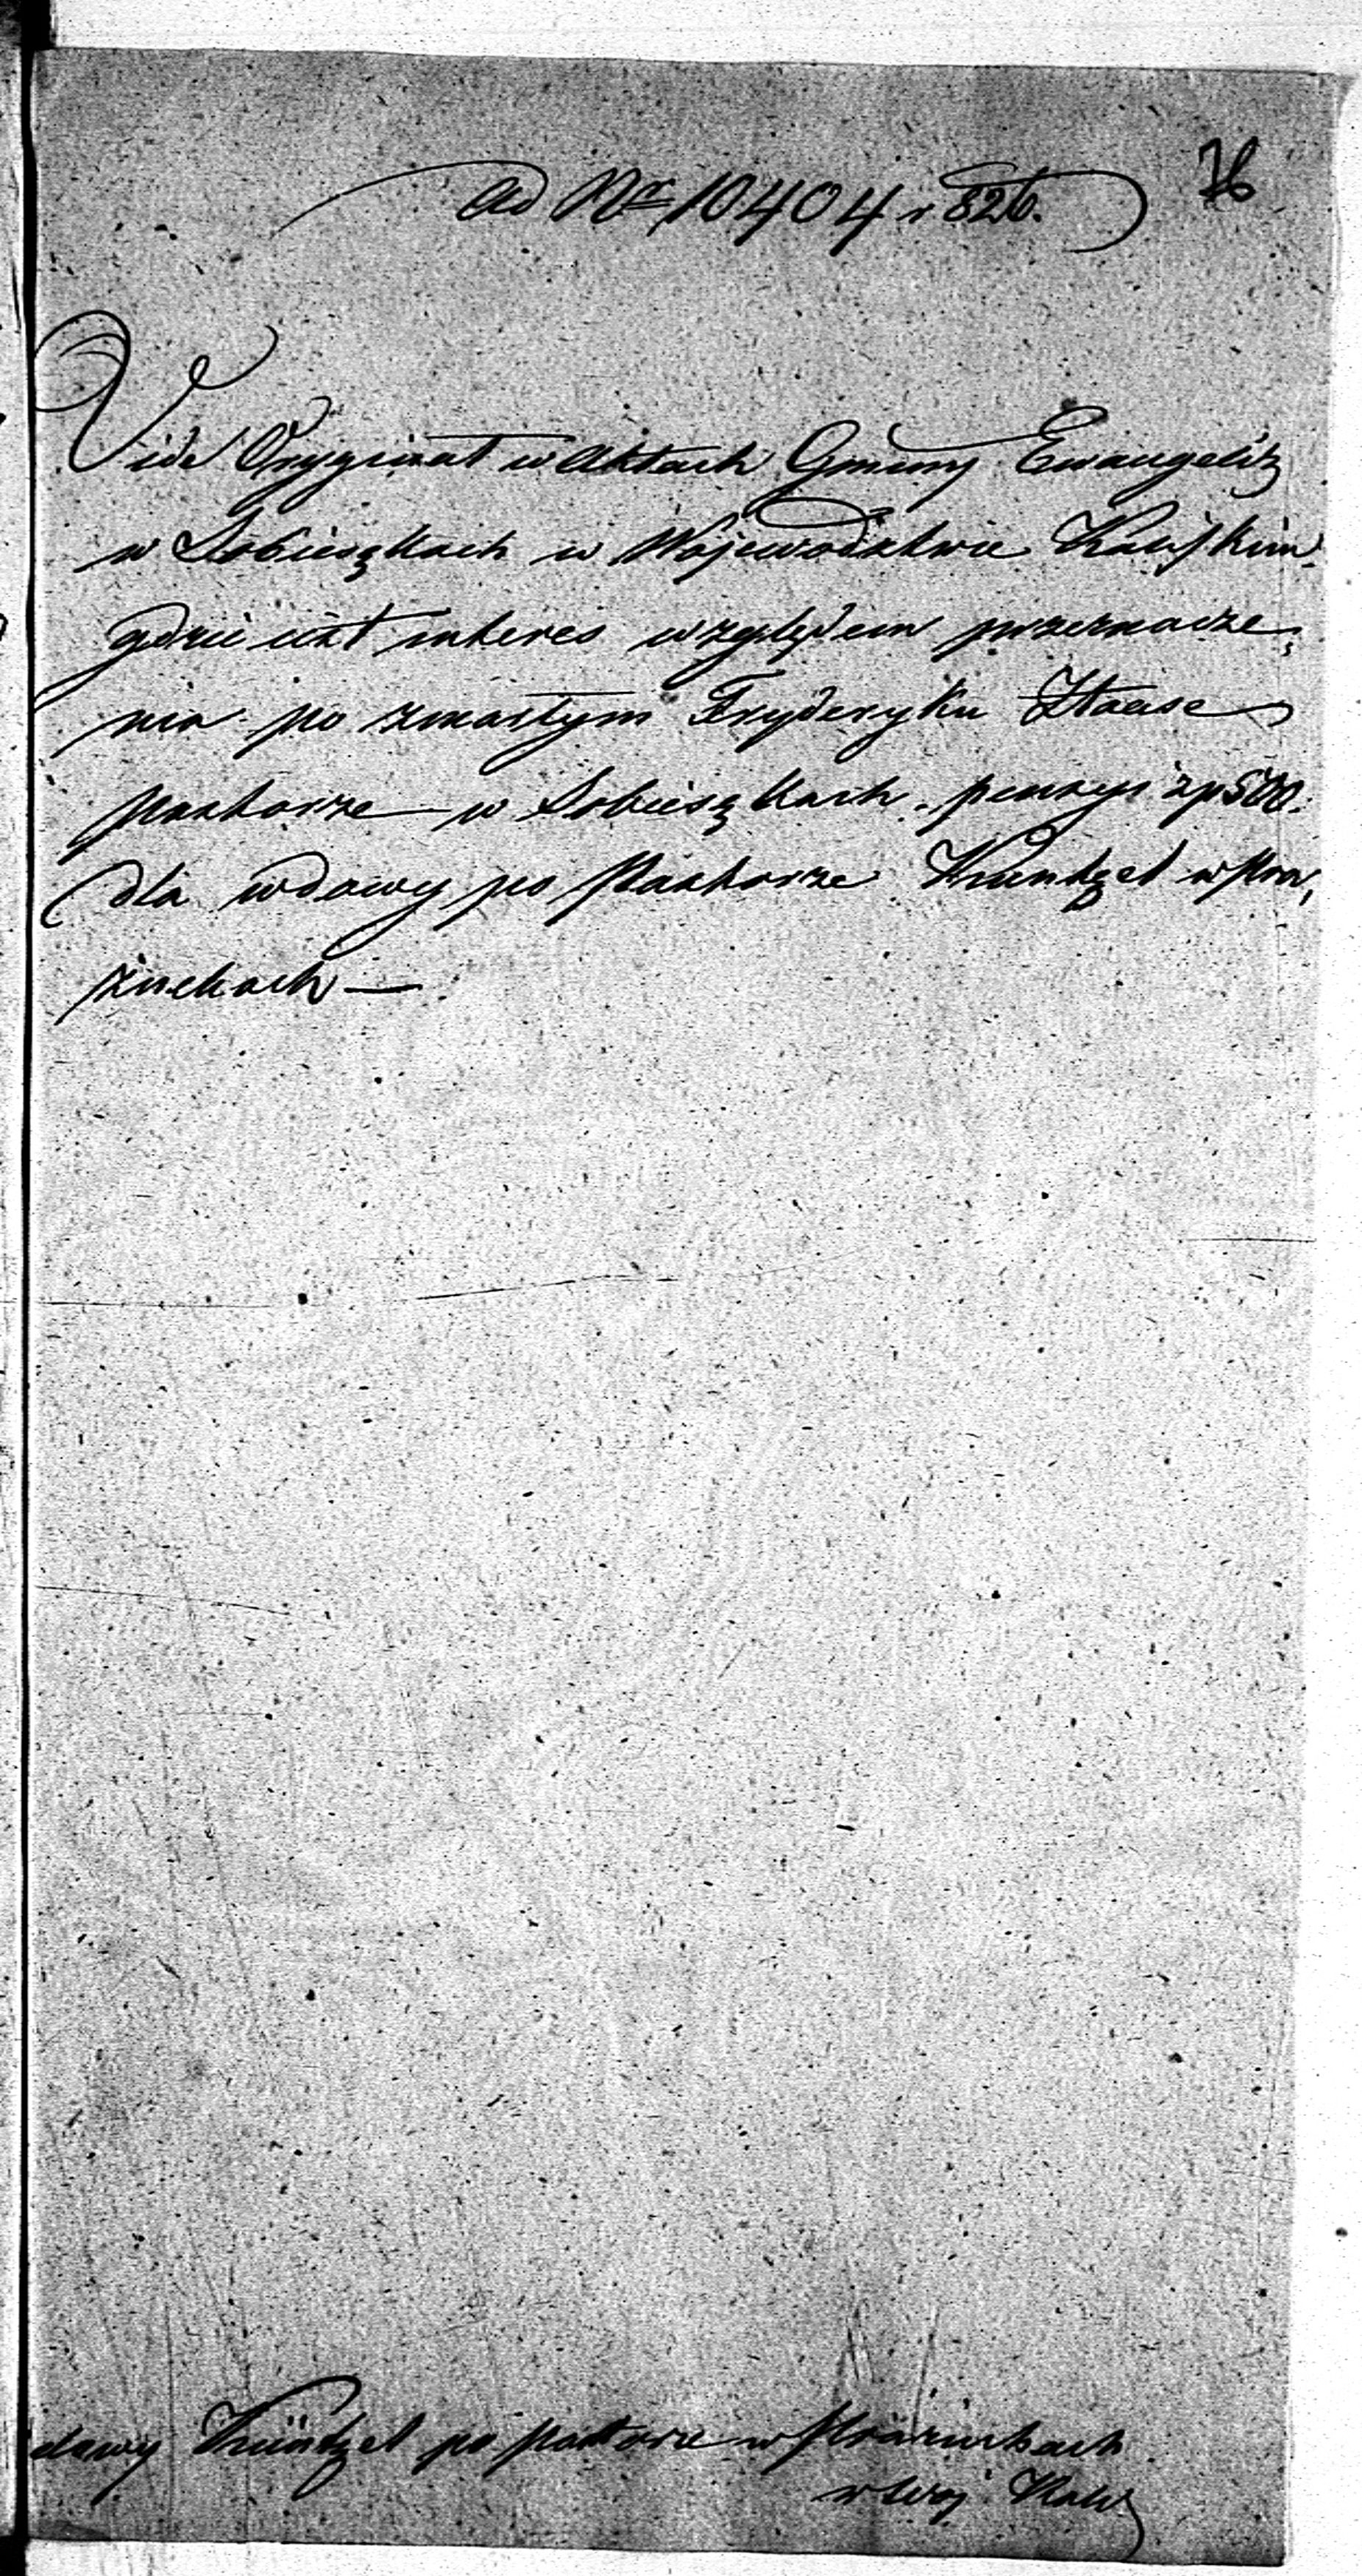 76
Ad Nr 10404 r 826.
Vide Oryginał w Aktach Gminy Ewangelick
w Sobiesękach w Wojewodztwie Kalisskim
gdzie iest interes względem przeznacze,
nia po zmarłym Fryderyku Haase
Pastorze w Sobiesękach pensyi zp 500.
dla wdowy po Pastorze Kuntzel w Pra,
żuchach —
dowy Küntzel po Pastorze w Prażuchach
w Woj Kali